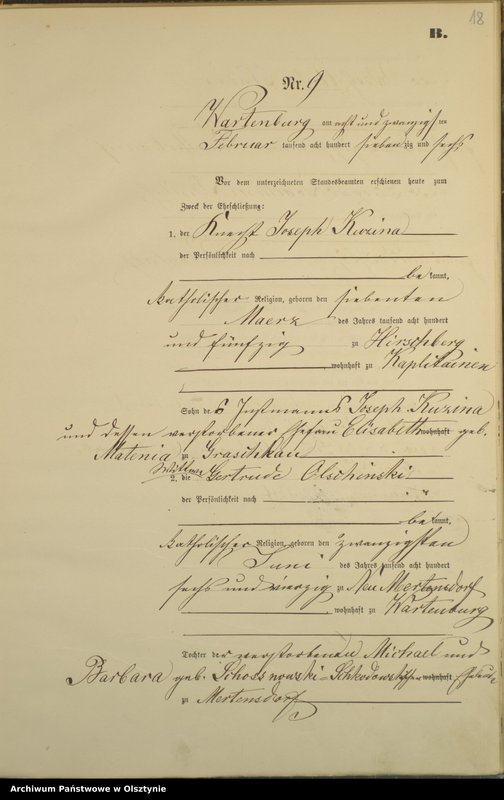 18
B.
Nr. 9
Wartenburg am acht und zwanzigsten
Februar tausend acht hundert siebenzig und sechs
Vor dem unterzeichneten Standesbeamten erschienen heute zum
Zweck der Eheschließung:
1. der Knecht Joseph Kuzina
der Persönlichkeit nach
be kannt,
katholischer Religion, geboren den siebenten
Maerz des Jahres tausend acht hundert
und fünfzig zu Hirschberg
, wohnhaft zu Kaplitainen
Sohn des Instmanns Joseph Kuzina
und dessen verstorbener Ehefrau Elisabeth wohnhaft geb.
Matenia zu Graschkau
2. die Wittwe Gertrude Olschinski
der Persönlichkeit nach
be kannt,
katholischer Religion, geboren den zwanzigsten
Juni des Jahres tausend acht hundert
sechs und vierzig zu Neu Mertensdorf
, wohnhaft zu Wartenburg
Tochter der verstorbenen Michael und
Barbara geb. wohnhaft
zu Mertensdorf
Archiwum Państwowe w Olsztynie